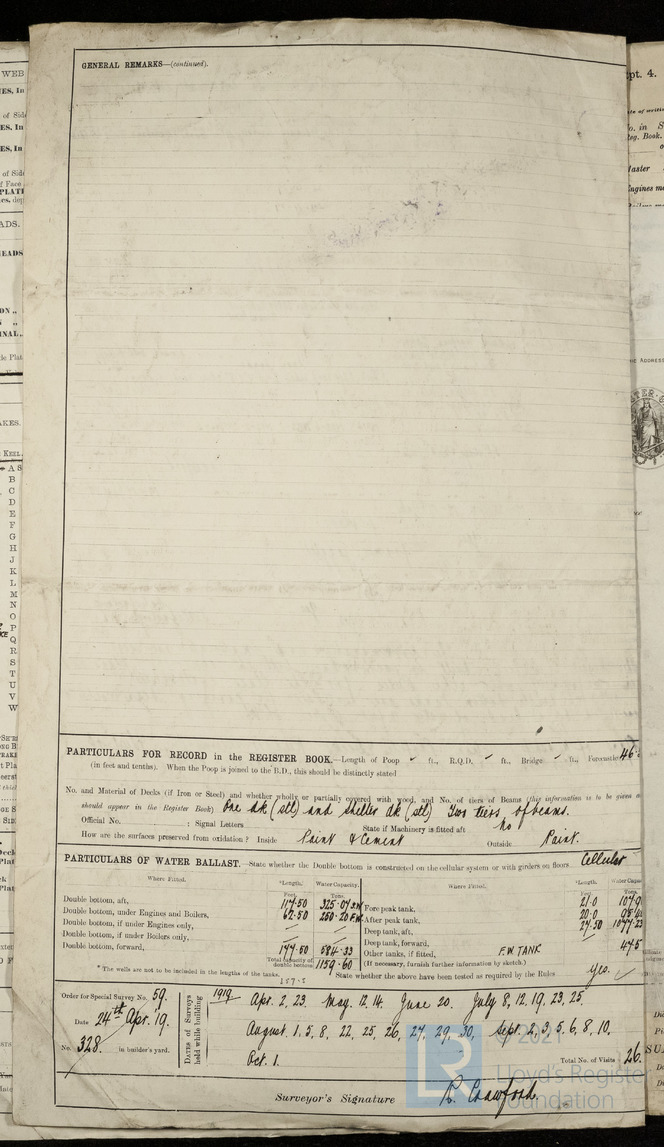 GENERAL REMARKS—(continued).
PARTICULARS FOR RECORD in the REGISTER BOOK.—Length of Poop ✓ ft., R.Q.D. ✓ ft., Bridge ✓ ft., Forecastle 46
(in feet and tenths). When the Poop is joined to the B.D., this should be distinctly stated
No. and Material of Decks (if Iron or Steel) and whether wholly or partially covered with wood, and No. of tiers of Beams (this information is to be given
should appear in the Register Book) One dk (stl) and shelter dk (stl) Two tiers of beams.
Official No. : Signal Letters State if Machinery is fitted aft No
How are the surfaces preserved from oxidation? Inside Paint & Cement Outside Paint.
PARTICULARS OF WATER BALLAST.—State whether the Double bottom is constructed on the cellular system or with girders on floors. Cellular
Where Fitted. Length. Water Capacity. Where Fitted. Length. Water Capac
Feet. Tons. Feet. Tons.
Double bottom, aft, 117.50 325.07 Fore peak tank, 21.0
Double bottom, under Engines and Boilers, 62.50 250.20 F.W. After peak tank, 20.0
Double bottom, if under Engines only, Deep tank, aft, 27.50
Double bottom, if under Boilers only, Deep tank, forward,
Double bottom, forward, 177.50 584.33 Other tanks, if fitted, F.W. TANK 475
Total capacity of double bottom 1159.60 (If necessary, furnish further information by sketch)
* The wells are not to be included in the lengths of the tanks. State whether the above have been tested as required by the Rules Yes. ✓
Order for Special Survey No. 59.
Date 24th Apr. '19.
No. 328. in builder's yard.
DATES of Surveys held while building
1919 Apr. 2, 23. May. 12, 14. June 20. July 8, 12, 19, 23, 25.
August. 1, 5, 8, 22, 25, 26, 27, 29, 30, Sept. 2, 3, 5, 6, 8, 10,
Oct. 1.
Total No. of Visits 26.
Surveyor's Signature R. Crawford.
© 2021
Lloyd's Register
Foundation
LR